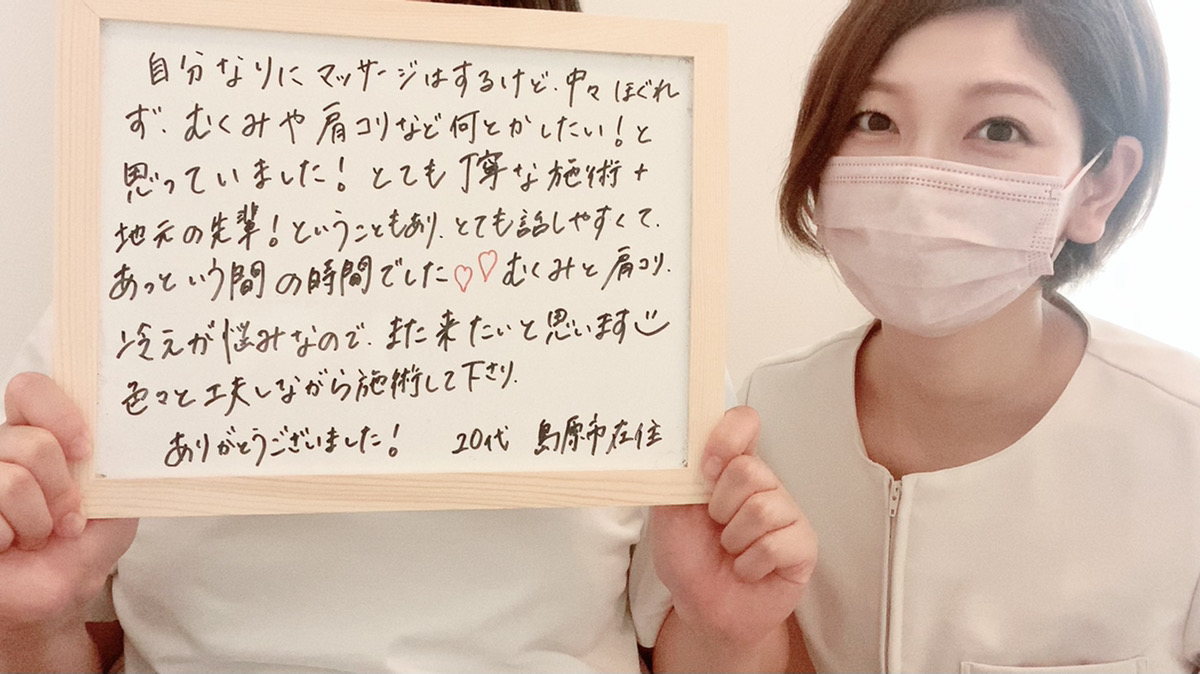 自分なりにマッサージはするけど、中々ほぐれ
ず、むくみや肩コリなど何とかしたい！と
思っていました！とても丁寧な施術+
地元の先輩！ということもあり、とても話しやすくて、
あっという間の時間でした♡♡むくみと肩コリ、
冷えが悩みなので、また来たいと思います
色々と工夫しながら施術して下さり、
ありがとうございました！ 20代 島原市在住